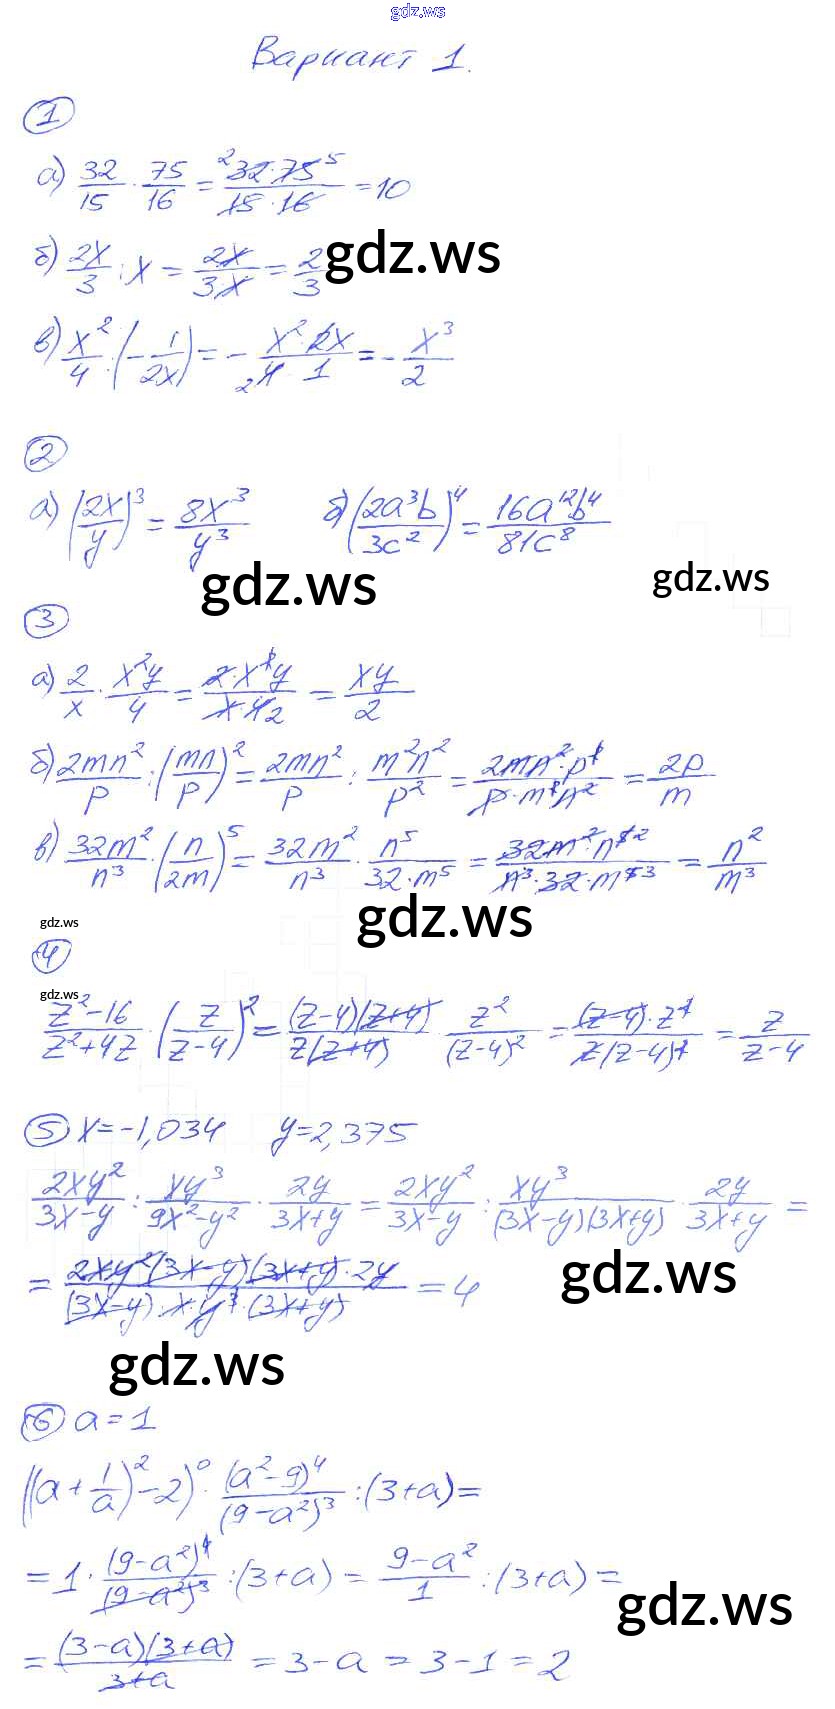 gdz.ws
Вариант 1.
1
а) 32/15 · 75/16 = ²32·75⁵/15·16 = 10
б) 2x/3 : x = 2x/3·x = 2/3 gdz.ws
в) x²/4 : (-1/2x) = - x²·2x/₂4·1 = - x³/2
2
а) (2x/y)³ = 8x³/y³ б) (2a³b/3c²)⁴ = 16a¹²b⁴/81c⁸
gdz.ws gdz.ws
3
а) 2/x · x²y/4 = 2·x²y/x·4₂ = xy/2
б) 2mn²/p : (mn/p)² = 2mn²/p : m²n²/p² = 2mn²·p²/p·m²n² = 2p/m
в) 32m²/n³ · (n/2m)⁵ = 32m²/n³ · n⁵/32·m⁵ = 32m²·n⁵²/n³·32·m⁵³ = n²/m³
gdz.ws gdz.ws
4
gdz.ws
z²-16/z²+4z · (z/z-4)² = (z-4)(z+4)/z(z+4) · z²/(z-4)² = (z-4)·z²/z(z-4)² = z/z-4
5 x=-1,034 y=2,375
2xy²/3x-y : xy³/9x²-y² · 2y/3x+y = 2xy²/3x-y : xy³/(3x-y)(3x+y) · 2y/3x+y =
= 2xy²(3x-y)(3x+y)·2y/(3x-y)·x·y³·(3x+y) = 4 gdz.ws
gdz.ws
6 a=1
((a+1/a)²-2)⁰ · (a²-9)⁴/(9-a²)³ : (3+a) =
= 1 · (9-a²)⁴/(9-a²)³ : (3+a) = 9-a²/1 : (3+a) =
gdz.ws
= (3-a)(3+a)/3+a = 3-a = 3-1 = 2